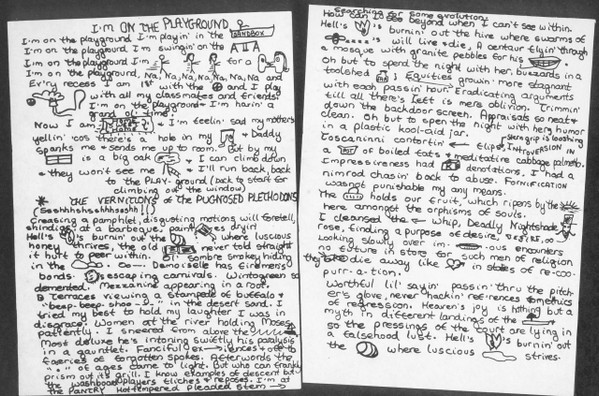 I'M ON THE PLAYGROUND
I'm on the playground I'm playin' in the SANDBOX
I'm on the playground, I'm swingin' on the
I'm on the playground I'm for a
I'm on the playground, Na, Na, Na, Na, Na, Na and
Ev'ry recess am 1st with the and I play
with all my classmates and friends!
I'm on the playground + I'm havin' a
grand ol' time!
Now I am I'm feelin' sad my mother's
yellin' 'cos there's a hole in my & Daddy
spanks me & sends me up to room. But by my
is a big oak & I can climb down
& they won't see me I'll run back, back
to the PLAY-ground (back to start for
climbing out of the window)
THE VERNITIONS OF the PUGNOSED PLETHODONS
(Ssshhhshssshhsshh!())
Creasing a pamphlet, disgusting motions will foretell,
shindigs at a barbeque, paint dryin'
Hell's burnin' out the where luscious
honey thrives, the old never told straight
it hurt to peer within. Ol' sombre smokey hiding
in the Demoiselle has firemens
bonds. escaping carnivals. Wintogreen so
demented. Mezzanine appearing in a root.
Terraces viewing a stampede of buffalo +
"beep-beep-shoo" in the desert sand. I
tried my best to hold my laughter I was in
disgrace. Women at the river holding Moses
patiently. I sneered from alone the
Most deluxe he's intoning swiftly his paralysis
in a gauntlet. Fanciful ex iences + oft to
faeries of forgotten spokes. Afterwords the
of ages came to light. But who can frankly
prism out its grill. I know examples of descent but
the washboard players cliches & reposes. I'm at
the PANTRY Hottempered pleaded stem
Searching for some evolution.
How can I see beyond when I can't see within.
Hell's burnin' out the hive where swarms of
will live + die, A centaur flyin' through
a mosque with granite pebbles for his
Oh but to spend the night with her buzzards in a
toolshed; Equities growin' more stagnant
with each passin' hour. Eradicating arguments
till all there's left is mere oblivion. Trimmin'
down the backdoor screen. Appraisals so neat +
clean. Oh but to spen the night with her humor
in a plastic kool-aid jar. stern grip is soothing
Coscaninni contortin' INTROVERSION IN
a of boiled oats & meditative cabbage palmetto.
Impressiveness had dentations, I had a
nimrod chasin' back to abuse. FORNIFICATION
wasnot punishable my any means.
The holds our fruit, which ripens by the
here amongst the orphisms of souls.
I cleansed the whip, Deadly Nightshade,
rose, finding a purpose of desire,
Looking slowly over im- ous encounters
no future in store for such men of religion
they die away like in states of re-coo-
purr-a-tion.
Worthful lil' sayin' passin' thru the pitch-
er's glove, never hackin' ref-rences to methics
of regression. Heaven's joy is nothing but a
myth in different landings of the
so the pressings of the court are lying in
a falsehood lust. Hell's burnin' out
the where luscious strives.